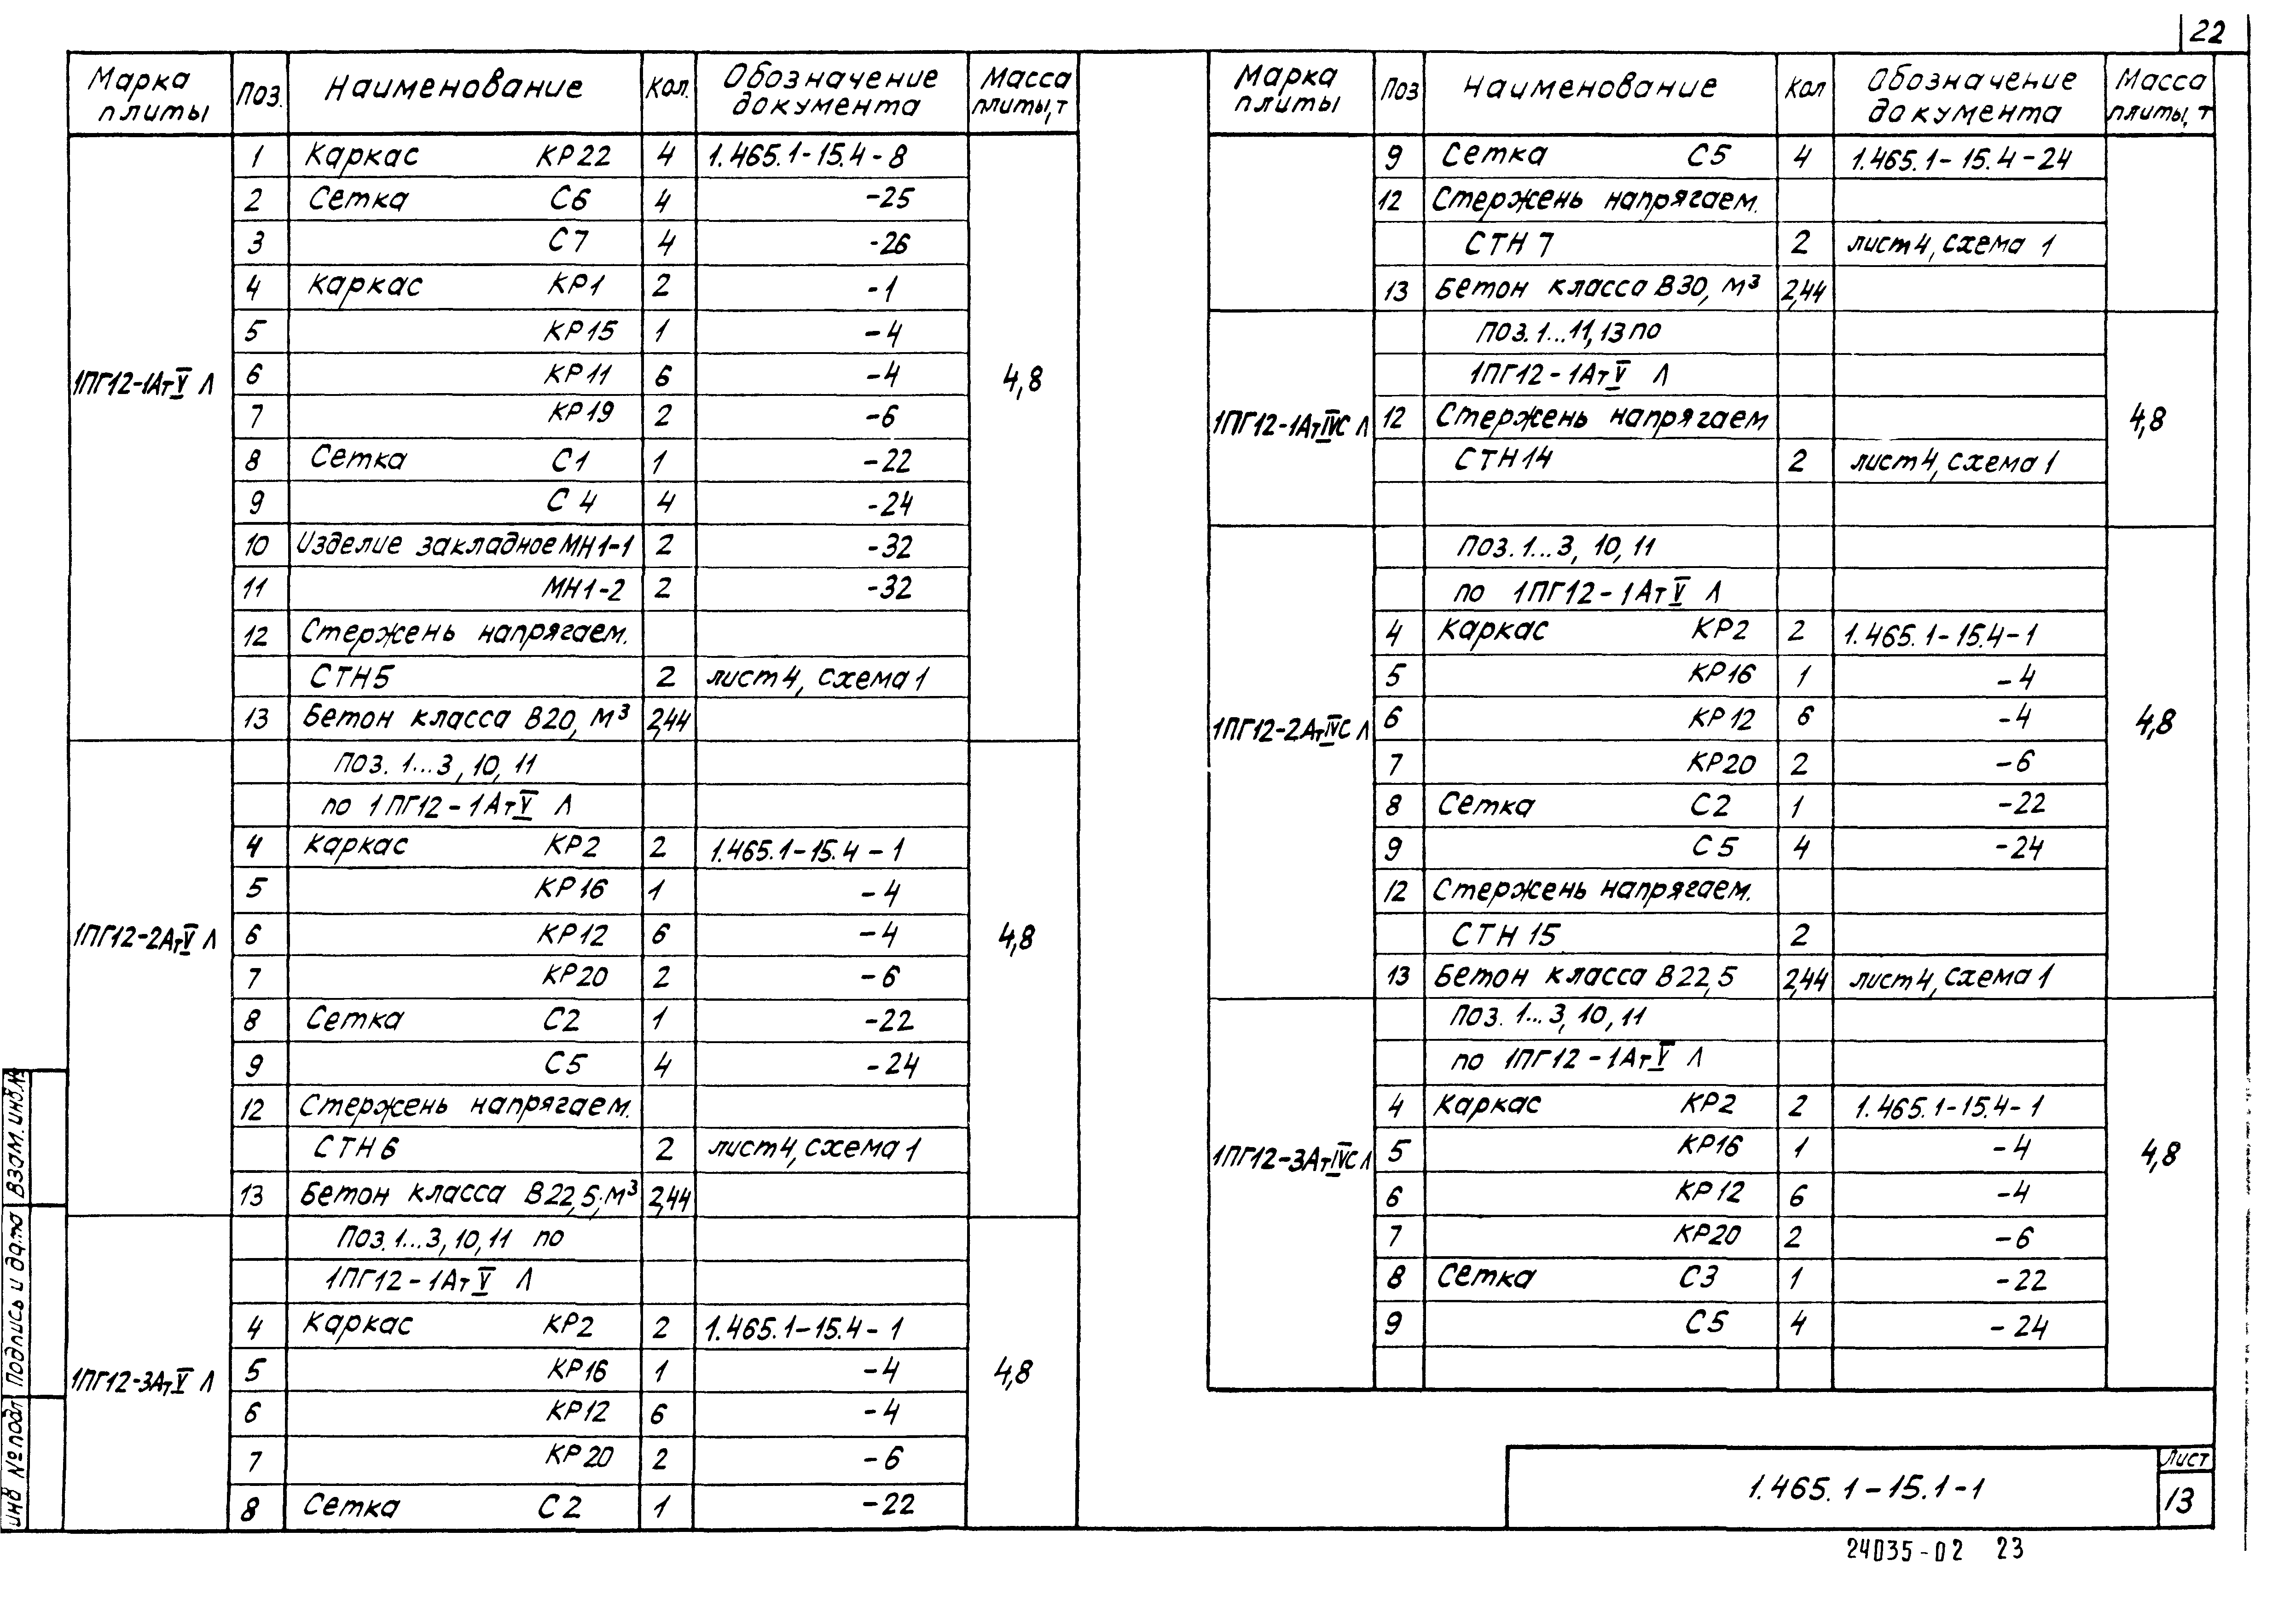 22
Марка плиты Поз. Наименование Кол. Обозначение документа Масса плиты, т
1ПГ12-1АтV Л 4,8
1 Каркас КР22 4 1.465.1-15.4-8
2 Сетка С6 4 -25
3 С7 4 -26
4 Каркас КР1 2 -1
5 КР15 1 -4
6 КР11 6 -4
7 КР19 2 -6
8 Сетка С1 1 -22
9 С4 4 -24
10 Изделие закладное МН1-1 2 -32
11 МН1-2 2 -32
12 Стержень напрягаем.
СТН5 2 лист 4, схема 1
13 Бетон класса В20, м³ 2,44
1ПГ12-2АтV Л 4,8
Поз. 1...3, 10, 11
по 1ПГ12-1АтV Л
4 Каркас КР2 2 1.465.1-15.4-1
5 КР16 1 -4
6 КР12 6 -4
7 КР20 2 -6
8 Сетка С2 1 -22
9 С5 4 -24
12 Стержень напрягаем.
СТН6 2 лист 4, схема 1
13 Бетон класса В22,5; м³ 2,44
1ПГ12-3АтV Л 4,8
Поз. 1...3, 10, 11 по
1ПГ12-1АтV Л
4 Каркас КР2 2 1.465.1-15.4-1
5 КР16 1 -4
6 КР12 6 -4
7 КР20 2 -6
8 Сетка С2 1 -22
Марка плиты Поз Наименование Кол Обозначение документа Масса плиты, т
9 Сетка С5 4 1.465.1-15.4-24
12 Стержень напрягаем.
СТН7 2 лист 4, схема 1
13 Бетон класса В30, м³ 2,44
1ПГ12-1АтIVС Л 4,8
Поз. 1...11, 13 по
1ПГ12-1АтV Л
12 Стержень напрягаем
СТН14 2 лист 4, схема 1
1ПГ12-2АтIVС Л 4,8
Поз. 1...3, 10, 11
по 1ПГ12-1АтV Л
4 Каркас КР2 2 1.465.1-15.4-1
5 КР16 1 -4
6 КР12 6 -4
7 КР20 2 -6
8 Сетка С2 1 -22
9 С5 4 -24
12 Стержень напрягаем.
СТН 15 2
13 Бетон класса В22,5 2,44 лист 4, схема 1
1ПГ12-3АтIVС Л 4,8
Поз. 1...3, 10, 11
по 1ПГ12-1АтV Л
4 Каркас КР2 2 1.465.1-15.4-1
5 КР16 1 -4
6 КР12 6 -4
7 КР20 2 -6
8 Сетка С3 1 -22
9 С5 4 -24
1.465.1-15.1-1
Лист
13
24035-02 23
Инв № подл Подпись и дата Взам. инв. №